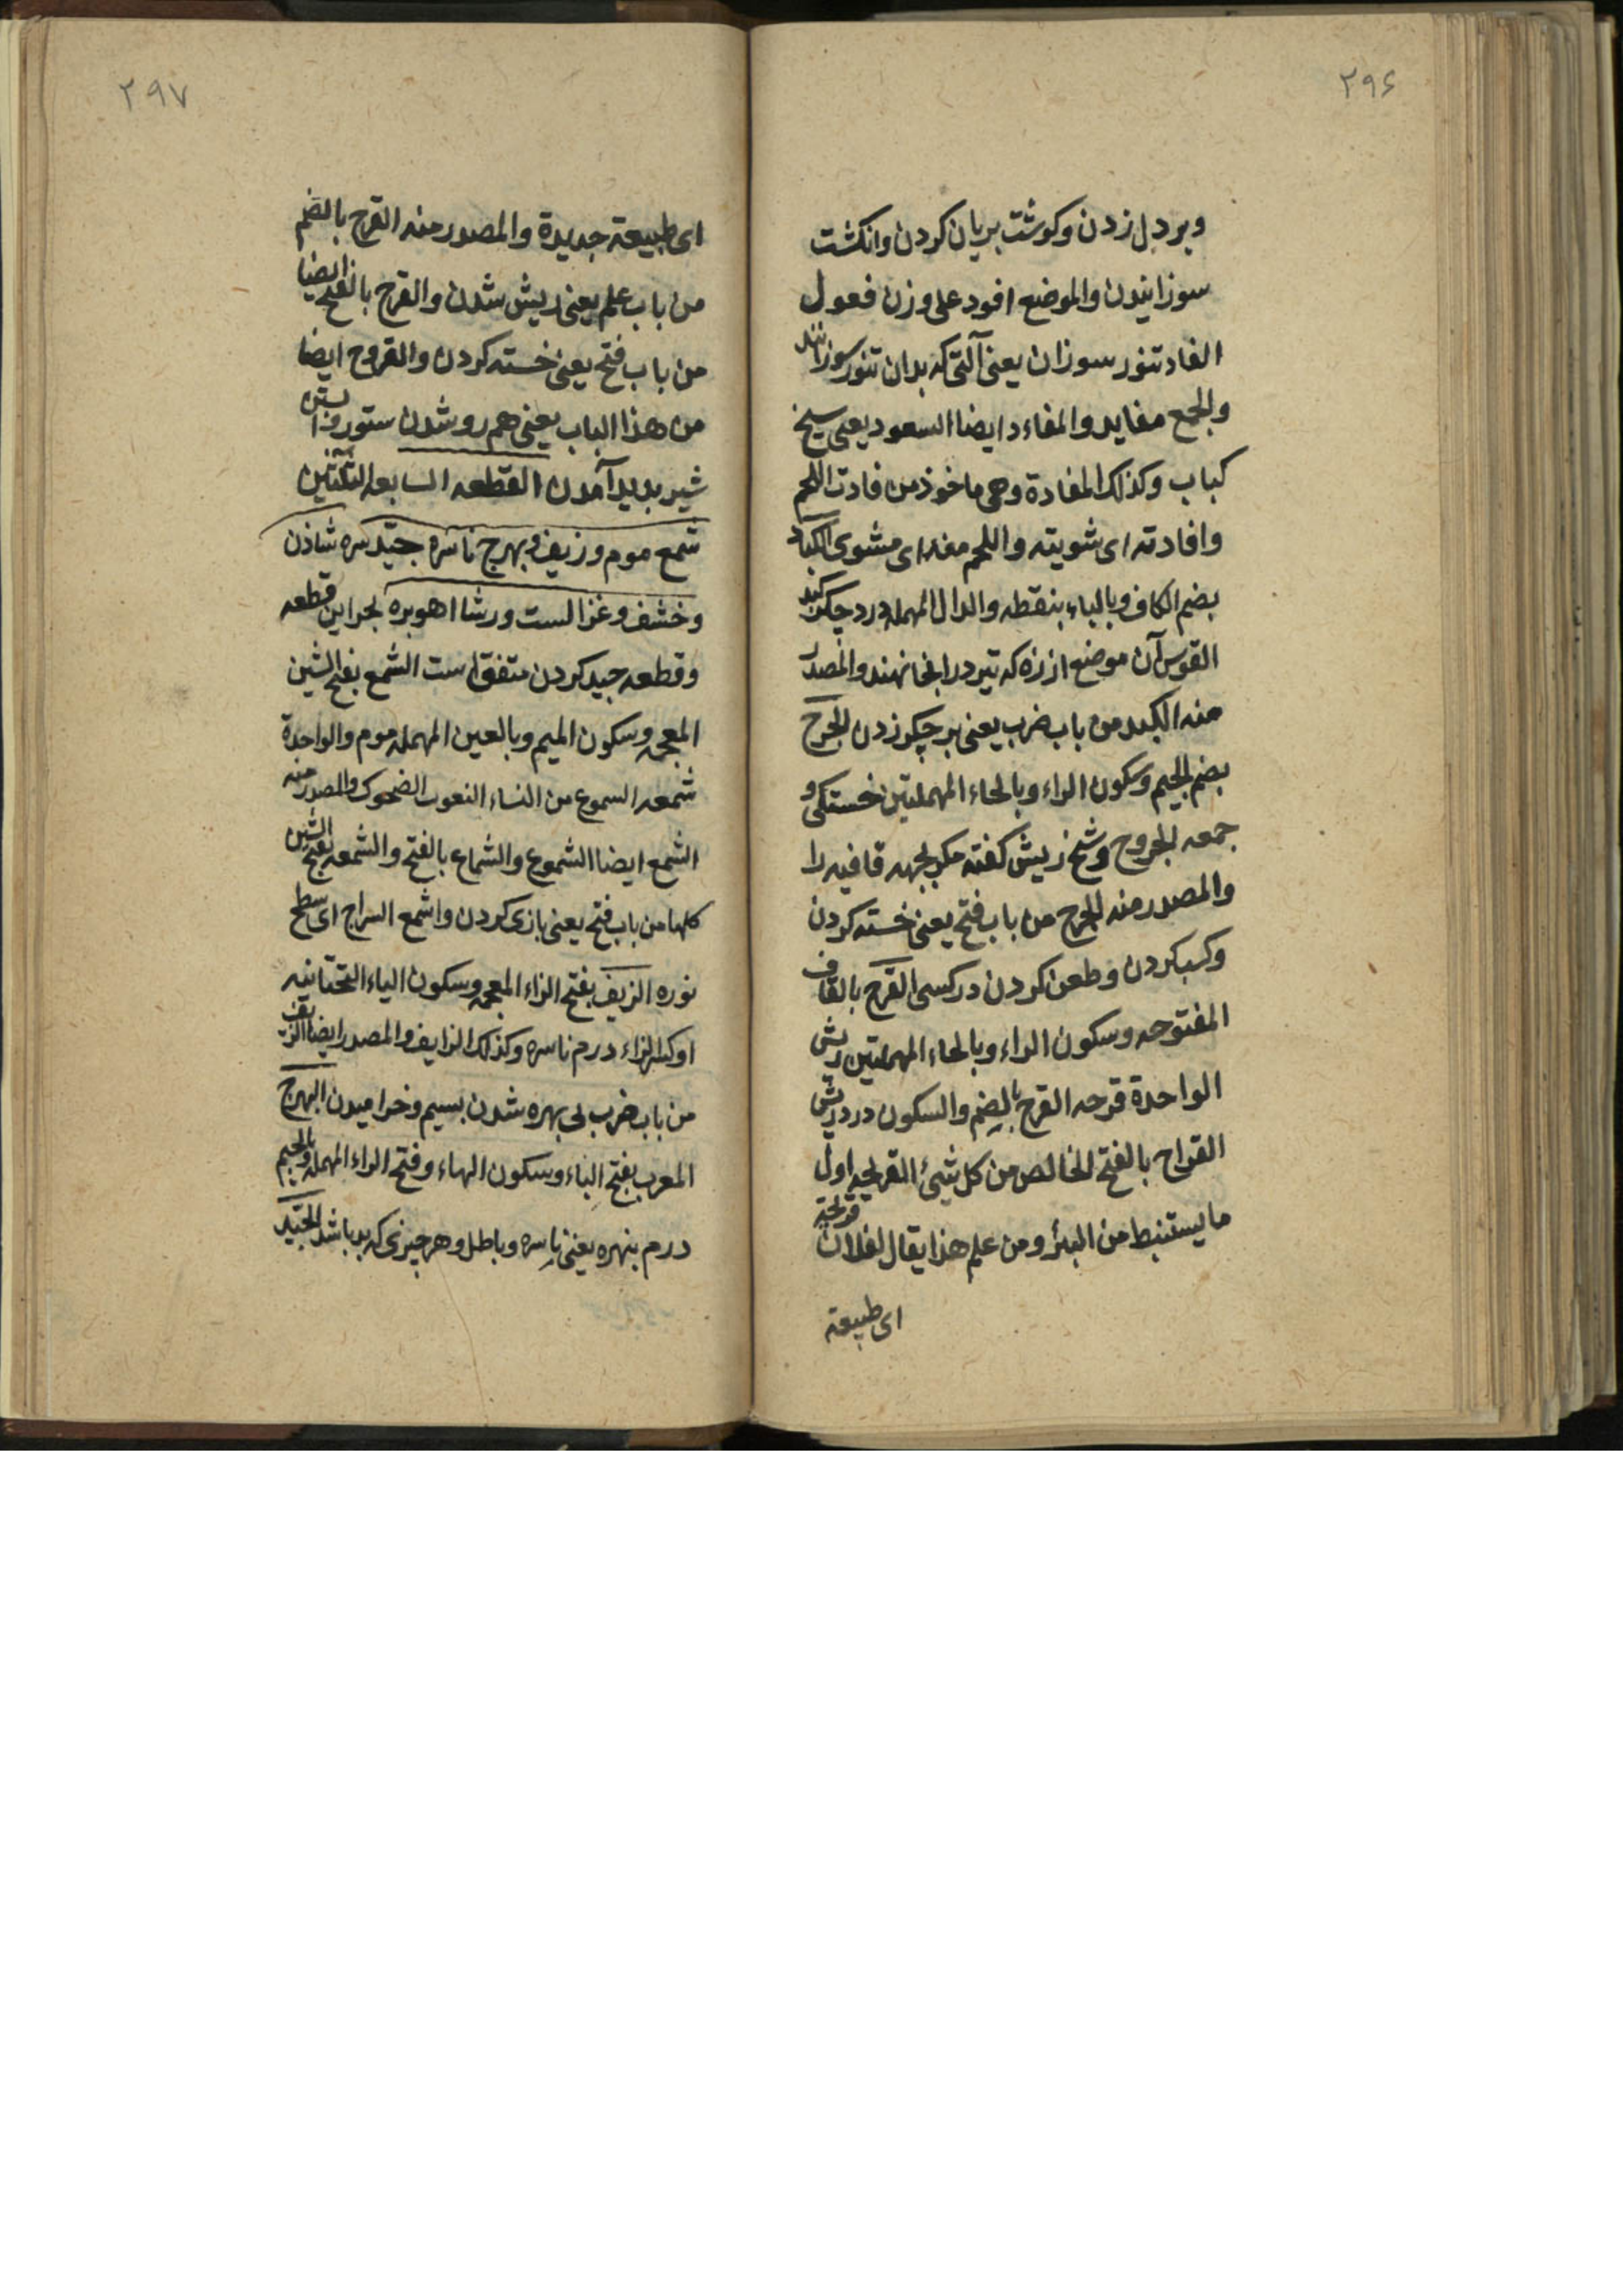 ۲۹۶
وبر دل زدن وکوشت بریان کردن وانکشت
سوزانیدن والموضع افود علی وزن فعول
الفاد تنور سوزان یعنی آلتی که بدان تنور سوزانند
والجمع مفاید والمفاءد ایضا السعود یعنی سیخ
کباب وکذلک المفادة وهی ماخوذ من فادت اللحم
وافادته ای شویته واللحم مفد ای مشوی الکباد
بضم الکاف وبالباء بنقطه والدال المهمله درد جکر کبد
القوس آن موضع از زه که تیر در انجا نهند والمصدر
منه الکبد من باب ضرب یعنی بر جکر زدن الجرح
بضم الجیم وسکون الراء وبالحاء المهملتین خستکی و
جمعه الجروح وشخ ریش کفته مکر بجهه قافیه را
والمصدر منه الجرح من باب فتح یعنی خسته کردن
وکسب کردن وطعن کردن در کسی القرح بالقاف
المفتوحه وسکون الراء وبالحاء المهملتین ریش
الواحدة قرحه القرح بالضم والسکون درد ریش
القراح بالفتح الخالص من کل شیئ القریحه اول
ما یستنبط من البئر ومن علم هذا یقال لفلان قریحة
ای طبیعة
۲۹۷
ای طبیعة جدیدة والمصدر منه القرح بالضم
من باب علم یعنی ریش شدن والقرح بالفتح ایضا
من باب فتح یعنی خسته کردن والقروح ایضا
من هذا الباب یعنی هم رو شدن ستور و
شیر بدید آمدن القطعه السابعه الثلثین
شمع موم وزیف وبهرج ناسره جیّد سره شاذن
وخشف وغزالست ورشا اهو بره لجر این قطعه
وقطعه جید کردن متفق است الشمع بفتح الشین
المعجمه وسکون المیم وبالعین المهمله موم والواحدة
شمعه السموع من النساء اللعوب الضحوک والمصدر منه
الشمع ایضا الشموع والشماع بالفتح والشمعه بفتح الشین
کلها من باب فتح یعنی بازی کردن واشمع السراج ای سطح
نوره الزیف بفتح الزاء المعجمه وسکون الیاء التحتانیه
او کسر الزاء درم ناسره وکذلک الزایف والمصدر ایضا الزیف
من باب ضرب بی بهره شدن بسیم وخرامیدن البهرج
المعرب بفتح الباء وسکون الهاء وفتح الراء المهمله والجیم
درم بنهره یعنی ناسره وباطل وهر جیزی که بد باشد الجیّد